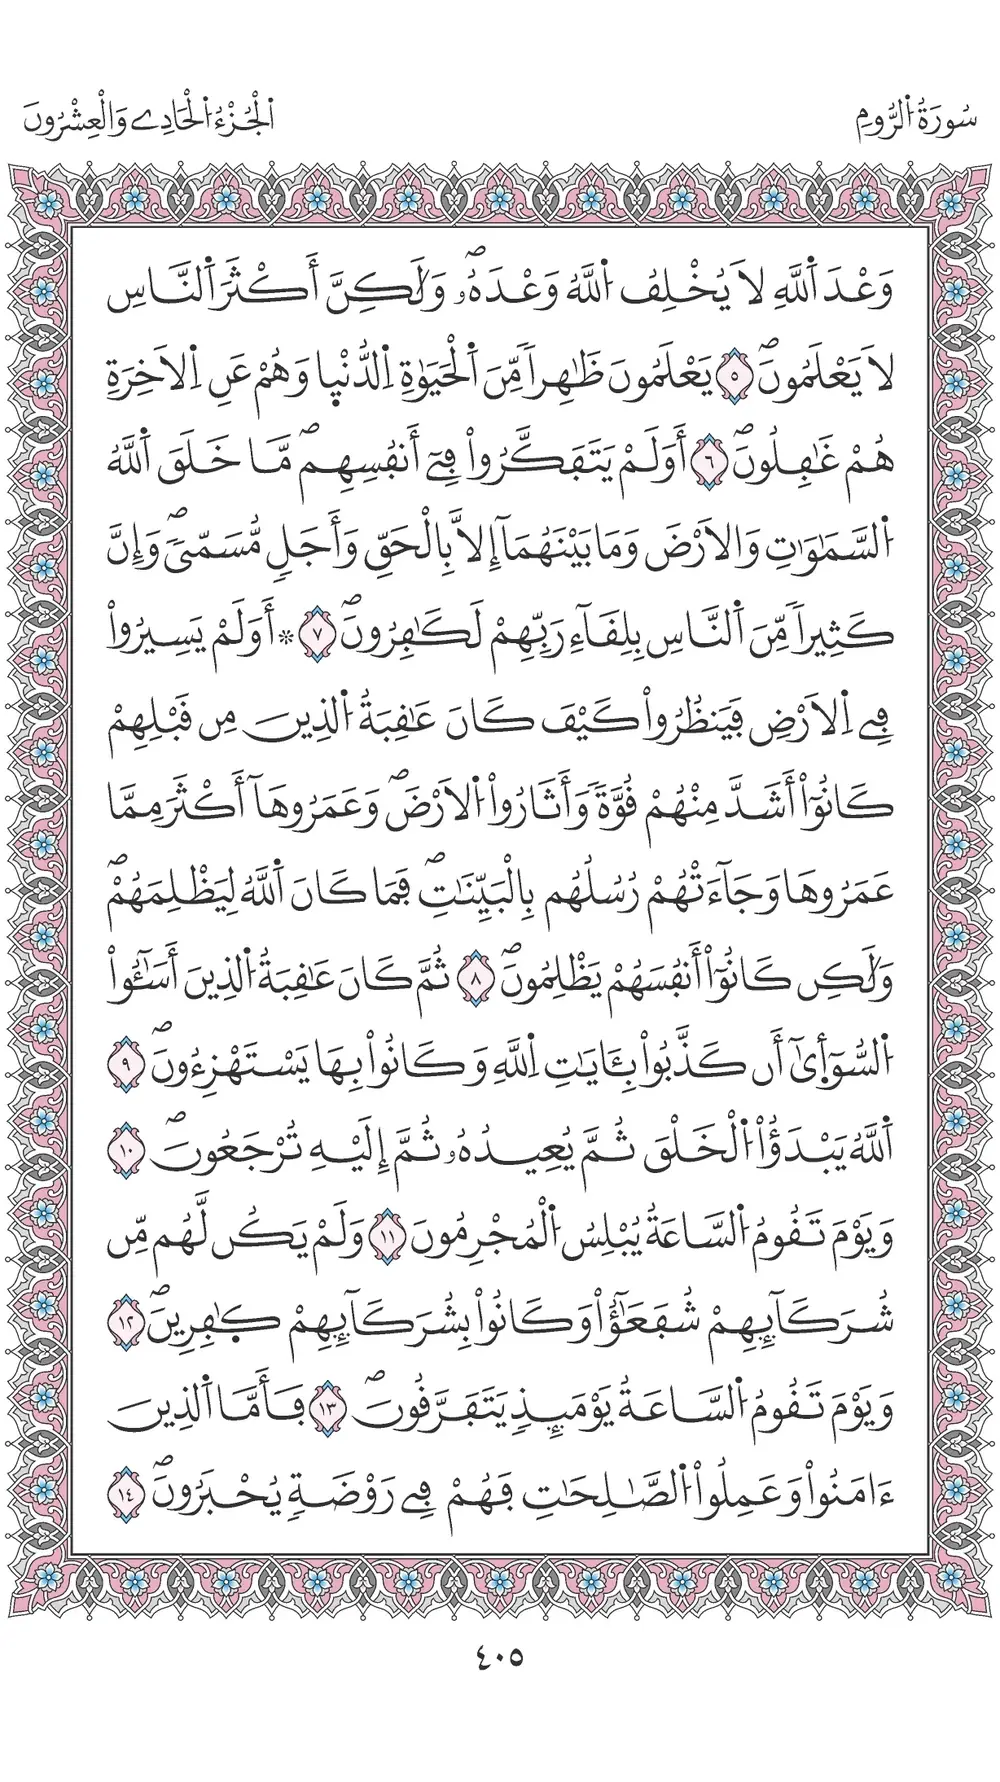 سُورَةُ اُ۬لرُّومِ
اَ۬لْجُزْءُ اُ۬لْحَادِے وَالْعِشْرُونَ
وَعْدَ اَ۬للَّهِ لَا يُخْلِفُ اُ۬للَّهُ وَعْدَهُۥۖ وَلَٰكِنَّ أَكْثَرَ اَ۬لنَّاسِ
لَا يَعْلَمُونَۖ ٥ يَعْلَمُونَ ظَٰهِراٗ مِّنَ اَ۬لْحَيَوٰةِ اِ۬لدُّنْي۪ا وَهُمْ عَنِ اِ۬لَاخِرَةِ
هُمْ غَٰفِلُونَۖ ٦ أَوَلَمْ يَتَفَكَّرُواْ فِےٓ أَنفُسِهِمۖ مَّا خَلَقَ اَ۬للَّهُ
اُ۬لسَّمَٰوَٰتِ وَالَارْضَ وَمَا بَيْنَهُمَآ إِلَّا بِالْحَقِّ وَأَجَلٖ مُّسَمّيٗۖ وَإِنَّ
كَثِيراٗ مِّنَ اَ۬لنَّاسِ بِلِقَآءِ رَبِّهِمْ لَكَٰفِرُونَۖ ٧ * أَوَلَمْ يَسِيرُواْ
فِے اِ۬لَارْضِ فَيَنظُرُواْ كَيْفَ كَانَ عَٰقِبَةُ اُ۬لذِينَ مِن قَبْلِهِمْ
كَانُوٓاْ أَشَدَّ مِنْهُمْ قُوَّةٗ وَأَثَارُواْ اُ۬لَارْضَۖ وَعَمَرُوهَآ أَكْثَرَ مِمَّا
عَمَرُوهَا وَجَآءَتْهُمْ رُسُلُهُم بِالْبَيِّنَٰتِۖ فَمَا كَانَ اَ۬للَّهُ لِيَظْلِمَهُمْۖ
وَلَٰكِن كَانُوٓاْ أَنفُسَهُمْ يَظْلِمُونَۖ ٨ ثُمَّ كَانَ عَٰقِبَةُ اُ۬لذِينَ أَسَٰٓـُٔواْ
اُ۬لسُّوٓأ۪ىٰٓ أَن كَذَّبُواْ بِـَٔايَٰتِ اِ۬للَّهِ وَكَانُواْ بِهَا يَسْتَهْزِءُونَۖ ٩
اَ۬للَّهُ يَبْدَؤُاْ اُ۬لْخَلْقَ ثُمَّ يُعِيدُهُۥ ثُمَّ إِلَيْهِ تُرْجَعُونَۖ ١٠
وَيَوْمَ تَقُومُ اُ۬لسَّاعَةُ يُبْلِسُ اُ۬لْمُجْرِمُونَ ١١ وَلَمْ يَكُن لَّهُم مِّن
شُرَكَآئِهِمْ شُفَعَٰٓؤُاْ وَكَانُواْ بِشُرَكَآئِهِمْ كٰ۪فِرِينَۖ ١٢
وَيَوْمَ تَقُومُ اُ۬لسَّاعَةُ يَوْمَئِذٖ يَتَفَرَّقُونَۖ ١٣ فَأَمَّا اَ۬لذِينَ
ءَامَنُواْ وَعَمِلُواْ اُ۬لصَّٰلِحَٰتِ فَهُمْ فِے رَوْضَةٖ يُحْبَرُونَۖ ١٤
٤٠٥